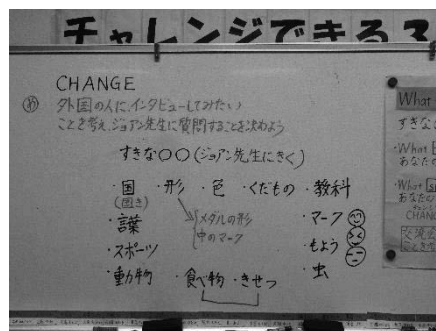 チャレンジできる3
CHANGE
め 外国の人に、インタビューしてみたい
ことを考え、ジョアン先生に質問することを決めよう
すきな○○(ジョアン先生にきく)
・国 ・形 ・色 ・くだもの ・教科
(国き)
メダルの形
中のマーク
・言葉 ・マーク
・スポーツ ・もよう
・動物 ・食べ物 ・きせつ ・虫
What
すきな
・What
あなたの
・What
あなたの
CHAN